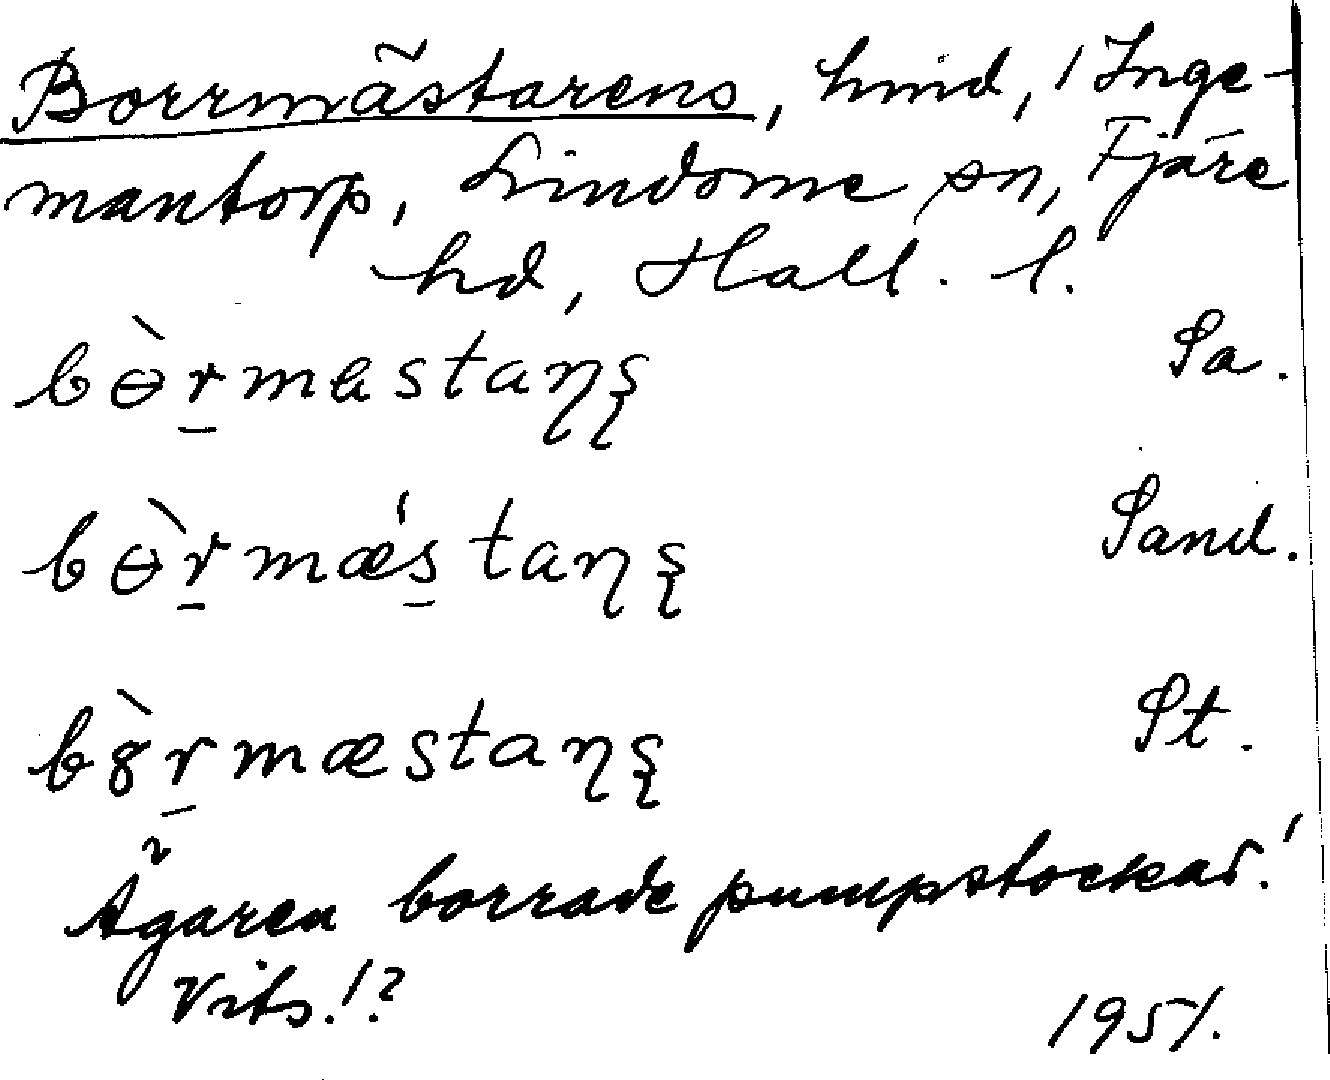 Borrmästarens, hmd, i Inge-
mantorp, Lindome sn, Fjäre
hd, Hall. l.
bɵ̀r̲mɐstaɳʂ Sa.
bɵ̀r̲mǽs̲taɳʂ Sand.
bȣ̀r̲mæstaɳʂ St.
Ägaren borrade pumpstockar!
Vits!? 1951.